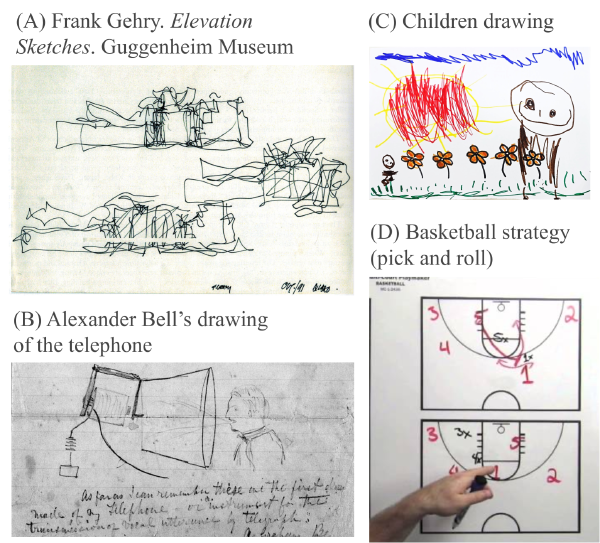 (A) Frank Gehry. Elevation
Sketches. Guggenheim Museum
(B) Alexander Bell's drawing
of the telephone
As far as I can remember these are the first
made of my telephone - or instrument for the
transmission of vocal utterance by telegraph
(C) Children drawing
(D) Basketball strategy
(pick and roll)
BASKETBALL
3 5 2
4 5x 1x
1
3 3x 5
4 4x 1 2